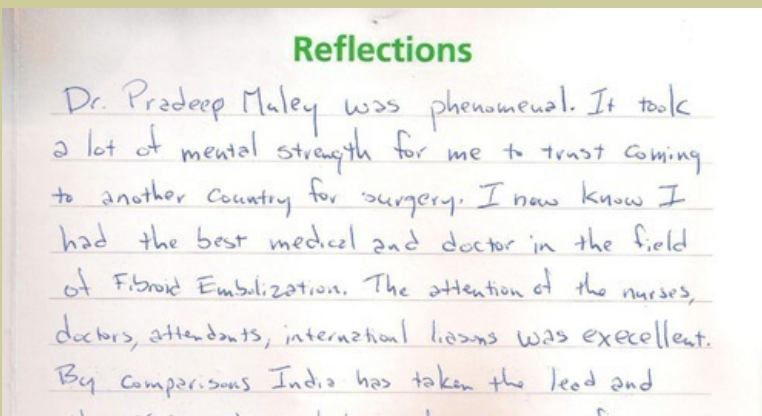 Reflections
Dr. Pradeep Muley was phenomenal. It took
a lot of mental strength for me to trust coming
to another country for surgery. I now know I
had the best medical and doctor in the field
of Fibroid Embolization. The attention of the nurses,
doctors, attendants, international liasons was execellent.
By comparisons India has taken the lead and